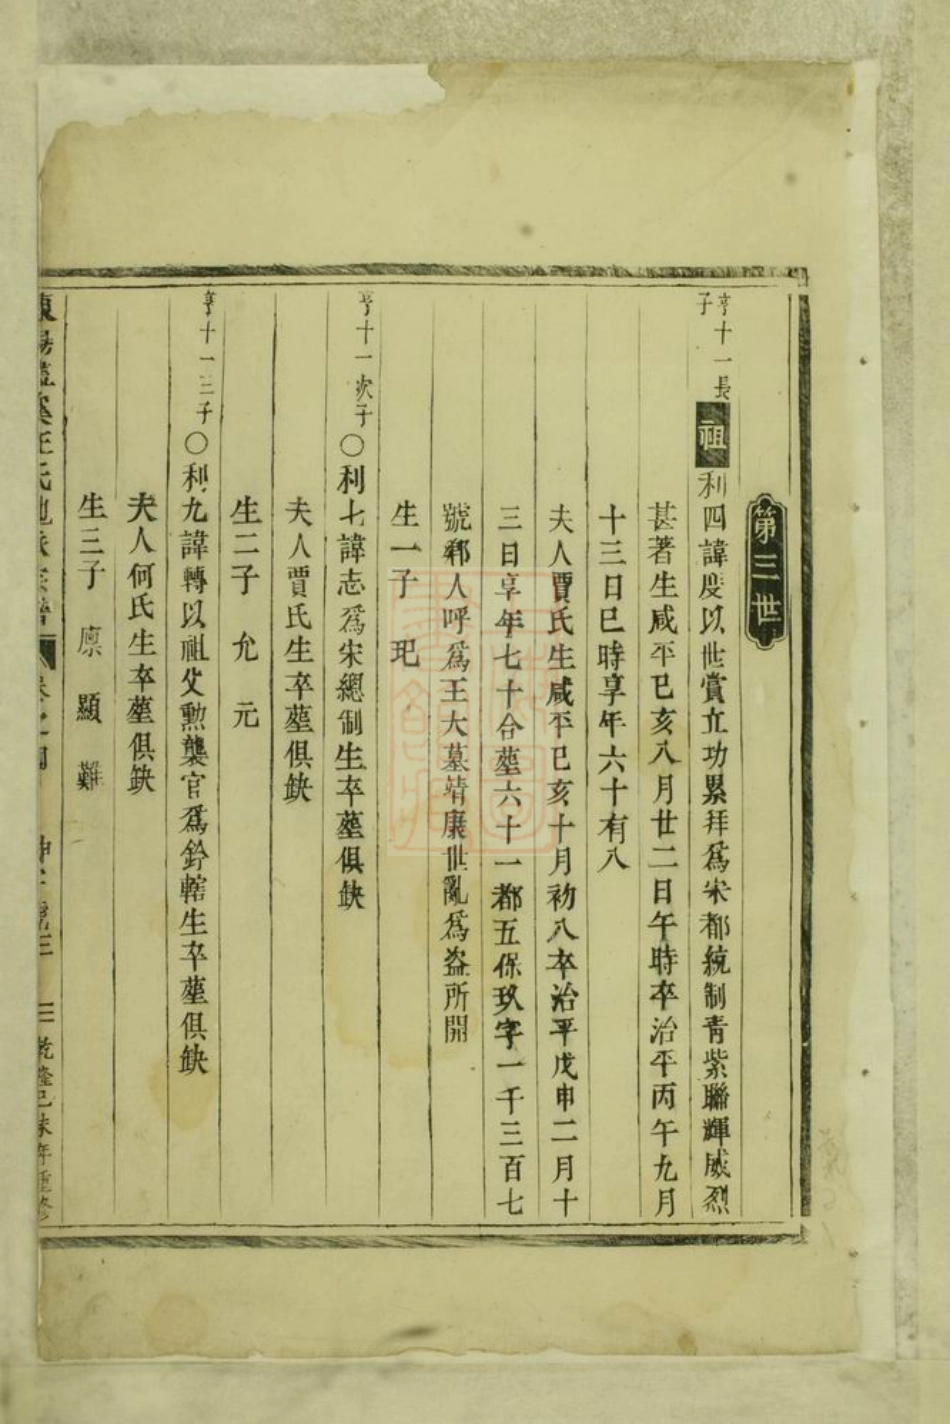 第三世
亨十一長子 祖 利四諱度以世賞立功累拜爲宋都統制青紫聯輝威烈
甚著生咸平己亥八月廿二日午時卒治平丙午九月
十三日巳時享年六十有八
夫人賈氏生咸平己亥十月初八卒治平戊申二月十
三日享年七十合塟六十一都五保玖字一千三百七
號鄉人呼爲王大墓靖康世亂爲盜所開
生一子 玘
亨十一次子〇利七諱志爲宋總制生卒塟俱缺
夫人賈氏生卒塟俱缺
生二子 允 元
亨十一三子〇利九諱轉以祖父勲襲官爲鈐轄生卒塟俱缺
夫人何氏生卒塟俱缺
生三子 廪 顯 難
汪氏 乾隆己未年重修